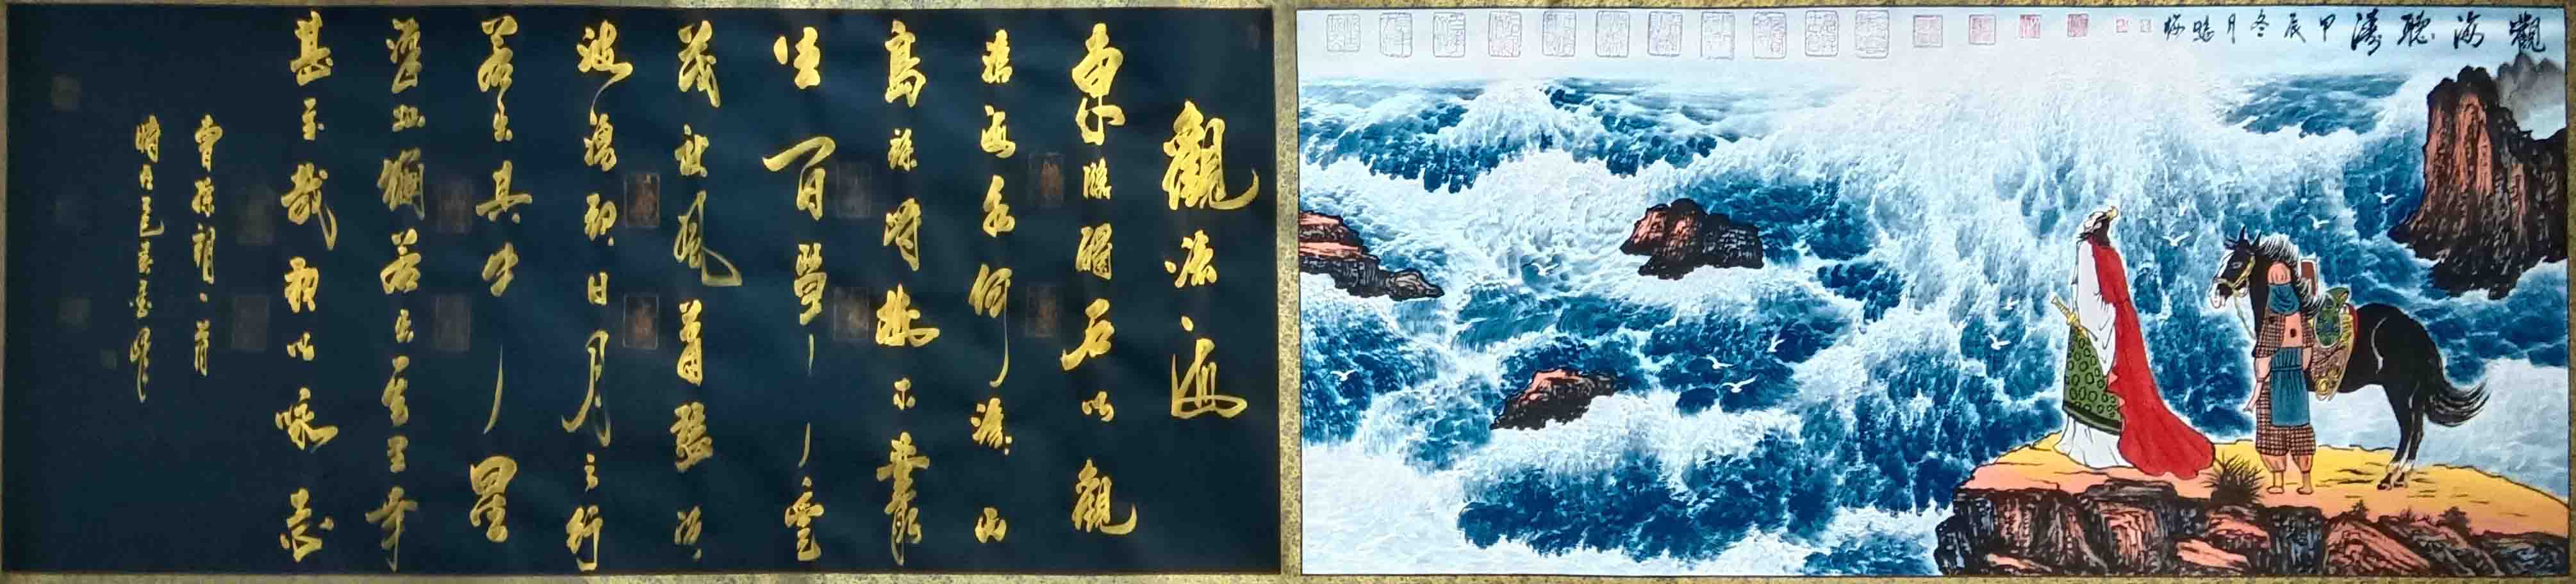 觀海聽濤 甲辰冬月
觀滄海
東臨碣石以觀
滄海水何澹澹山
島竦峙樹木叢
生百草豐
茂秋風蕭瑟洪
波湧起日月之行
若出其中星
漢燦爛若出其里幸
甚至哉歌以咏志
曹操詩一首